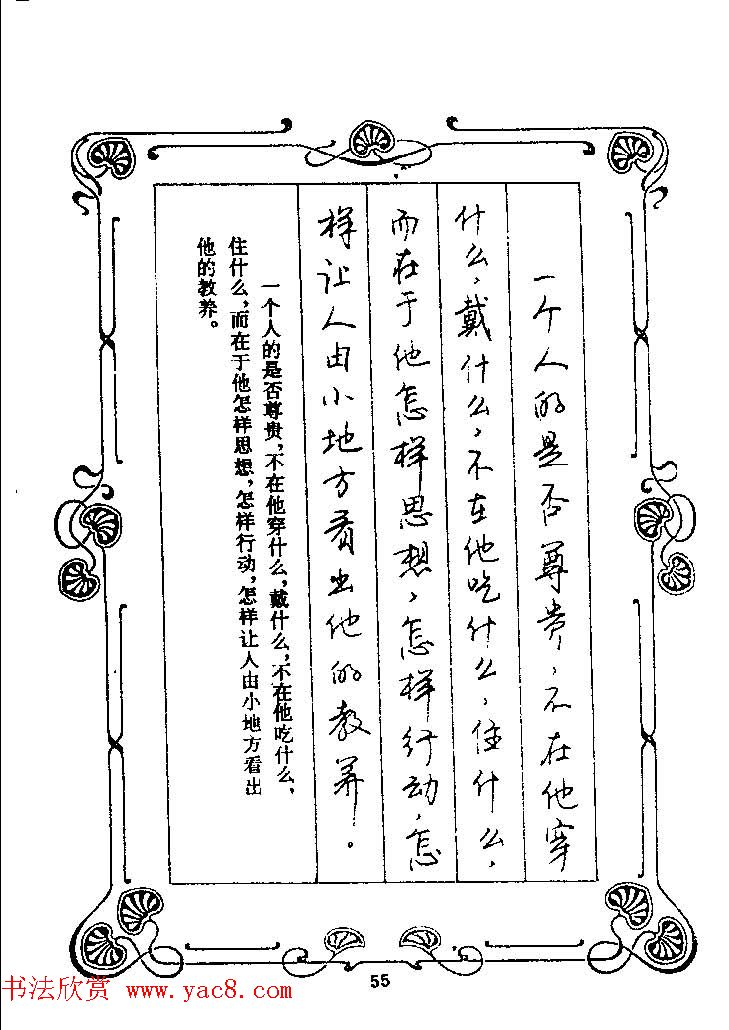 一个人的是否尊贵,不在他穿
什么,戴什么,不在他吃什么,住什么,
而在于他怎样思想,怎样行动,怎
样让人由小地方看出他的教养。
一个人的是否尊贵,不在他穿什么,戴什么,不在他吃什么,
住什么,而在于他怎样思想,怎样行动,怎样让人由小地方看出
他的教养。
55
书法欣赏 www.yac8.com